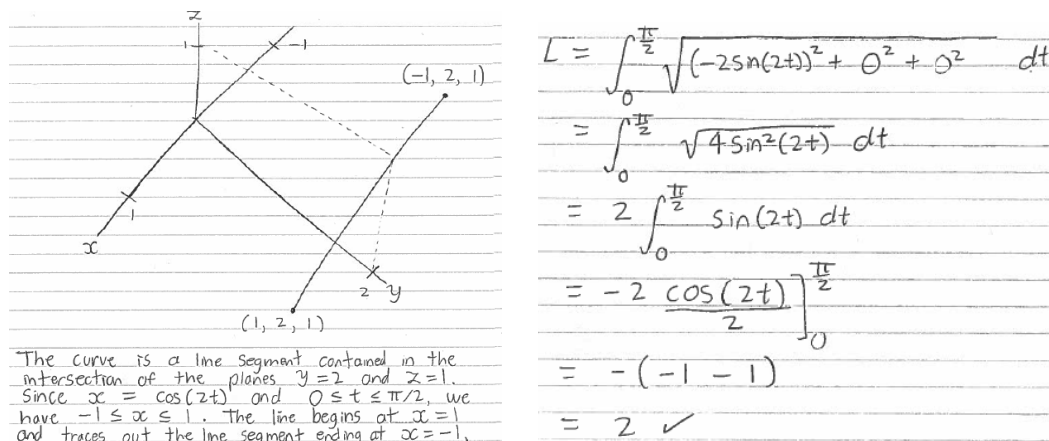 z
1
-1
(-1, 2, 1)
1
x
2 y
(1, 2, 1)
The curve is a line segment contained in the
intersection of the planes y=2 and z=1.
Since x = cos(2t) and 0 ≤ t ≤ π/2, we
have -1 ≤ x ≤ 1. The line begins at x=1
and traces out the line segment ending at x=-1.
L = ∫₀^{π/2} √((-2sin(2t))² + 0² + 0²) dt
= ∫₀^{π/2} √(4sin²(2t)) dt
= 2 ∫₀^{π/2} sin(2t) dt
= -2 cos(2t)/2 ]₀^{π/2}
= -(-1 - 1)
= 2 ✓